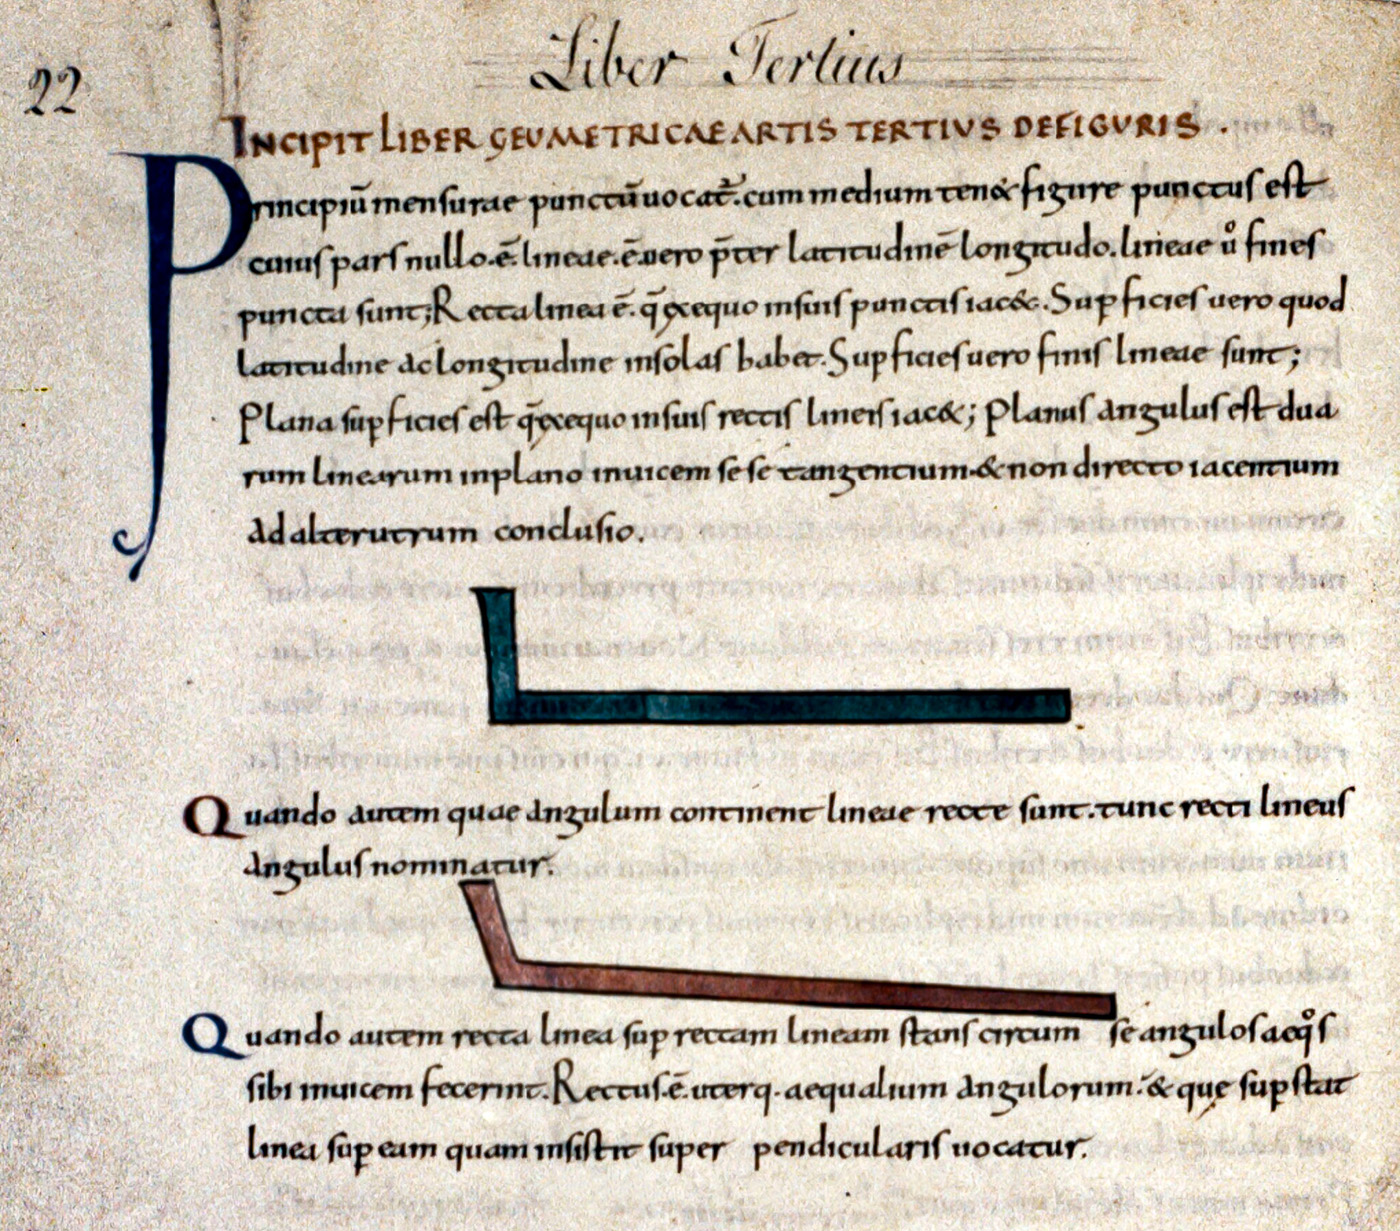 22
Liber Tertius
INCIPIT LIBER GEUMETRICAE ARTIS TERTIVS DEFIGVRIS .
Principiū mensurae punctū uocat̄. cum medium ten& figure punctus est
cuius pars nullo. ē. lineae. ē. uero p̄ter latitudinē longitudo. lineae ů fines
puncta sunt; Recta linea ē. q̄ exequo insuis punctis iac&. Sup ficies uero quod
latitudine ac longitudine insolas habet. Sup ficies uero finis lineae sunt;
Plana sup ficies est q̄ exequo insuis rectis lineis iac&; Planus angulus est dua
rum linearum inplano inuicem se se tangentium & non directo iacentium
ad alterutrum conclusio.
Quando autem quae angulum continent lineae recte sunt. tunc recti lineus
angulus nominatur.
Quando autem recta linea sup rectam lineam stans circum se angulos aeq̊s
sibi inuicem fecerint. Rectus. ē. uterq. aequalium angulorum. & quę sup stat
linea sup eam quam insistit super pendicularis uocatur.